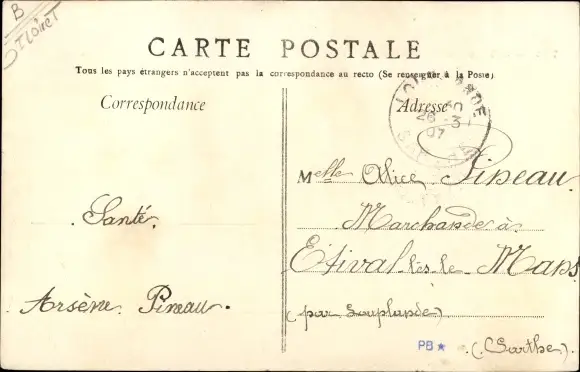 B
CARTE POSTALE
Tous les pays étrangers n'acceptent pas la correspondance au recto (Se renseigner à la Poste)
Correspondance
Adresse
28 -3
07
Melle Alice Pineau.
Santé.
Marchande à
Etival-lès-le Mans
Arsène Pineau.
(par Louplande)
PB★
(Sarthe).